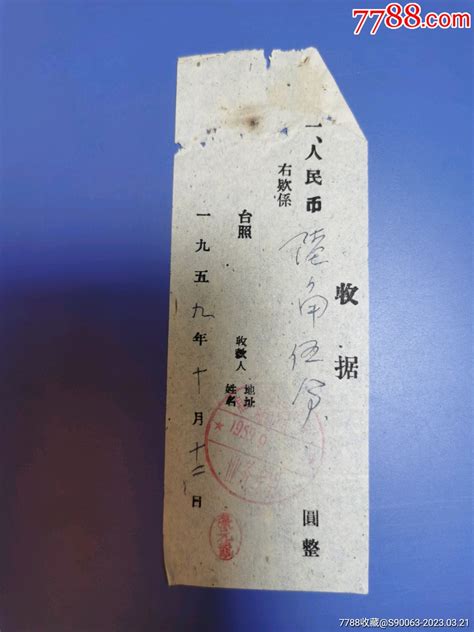 7788.com
收据
一、人民币 陆角伍分 圓整
右欵係
台照
收款人 地址 姓名
一九五九年十月十二日
7788收藏@S90063-2023.03.21